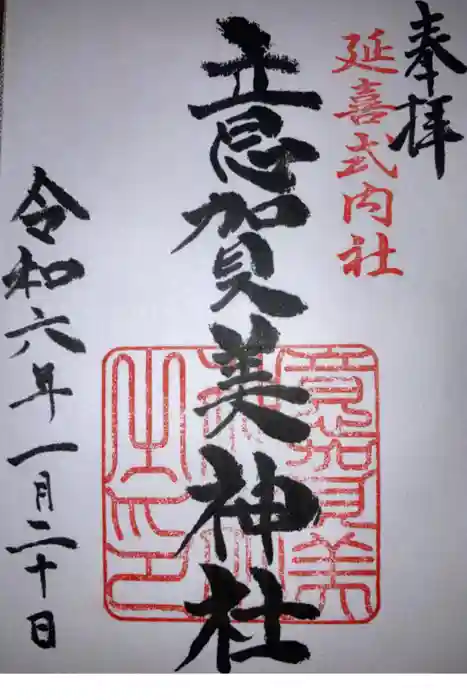 奉拝
延喜式内社
意賀美神社
意賀美
神社
之印
令和六年一月二十日